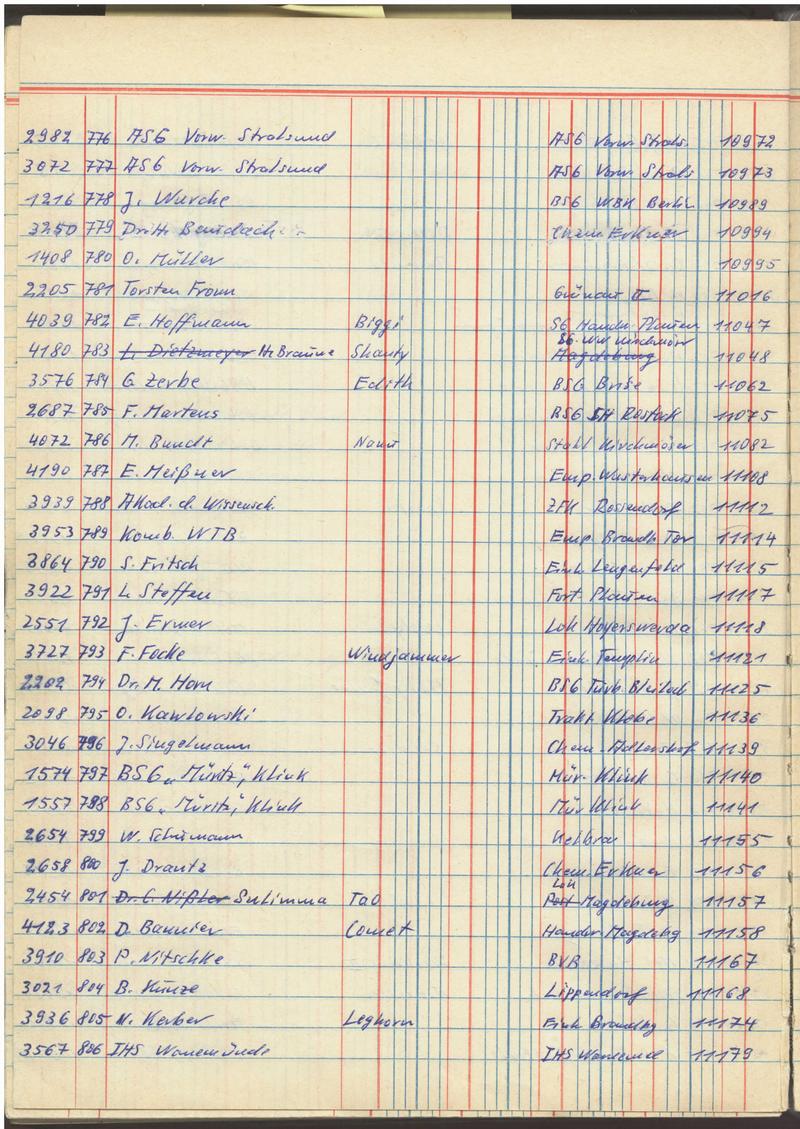 2982 776 ASG Vorw. Stralsund ASG Vorw. Strals. 10972
3072 777 ASG Vorw. Stralsund ASG Vorw. Strals 10973
1216 778 J. Wurche BSG WBK Berlin 10989
3250 779 Dritt. Chem. Erkner 10994
1408 780 O. Müller 10995
2205 781 Torsten Fromm Grünau II 11016
4039 782 E. Hoffmann Biggi SG Handw. Plauen 11047
SG. Kirchmöser
4180 783 L. Dietzmeyer H. Braune Shanty Magdeburg 11048
3576 784 G. Zerbe Edith BSG Brise 11062
2687 785 F. Martens BSG SH Rostock 11075
4072 786 M. Bundt Stahl Kirchmöser 11082
4190 787 E. Meißner Emp. Wusterhausen 11108
3939 788 Akad. d. Wissensch. ZFK Rossendorf 11112
3953 789 Komb. WTB Emp. Brandb. Tor 11114
3864 790 S. Fritsch Einh. Lengenfeld 11115
3922 791 L. Steffen Fort. Plauen 11117
2551 792 J. Ermer Lok Hoyerswerda 11118
3727 793 F. Focke Windjammer Einh. Templin 11121
2202 794 Dr. M. Horn BSG Turb. Bleiloch 11125
2098 795 O. Kawlowski Trakt. 11136
3046 796 J. Singelmann Chem. Adlershof 11139
1574 797 BSG „Müritz", Klink Mür. Klink 11140
1557 798 BSG „Müritz", Klink Mür Klink 11141
2654 799 W. Schumann Kelbra 11155
2658 800 J. Drautz Chem. Erkner 11156
Lok
2454 801 Dr. C. Nißler Sulimma Tao Post Magdeburg 11157
4123 802 D. Bannier Comet Handw. Magdebg 11158
3910 803 P. Nitschke BVB 11167
3021 804 B. Kunze Lippendorf 11168
3936 805 M. Kerber Leghorn Einh. Brandbg 11174
3567 806 IHS Warnemünde IHS Warnemd 11179